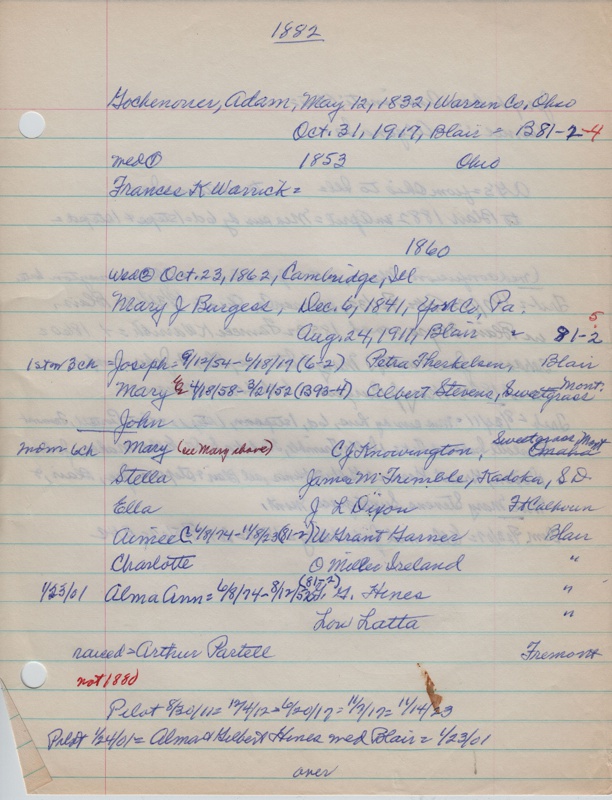 1882
Gochenouer, Adam, May 12, 1832, Warren Co, Ohio
Oct. 31, 1917, Blair = B81-2-4
med ① 1853 Ohio
Frances K Warrick =
1860
med ② Oct. 23, 1862, Cambridge, Ill
Mary J Burgess, Dec. 6, 1841, York Co, Pa.
Aug. 24, 1911, Blair = 81-2-5
1st m 3ch = Joseph = 9/12/54-4/18/17 (6-2) Petra Therkelsen, Blair
Mary E 4/18/58-3/21/52 (B93-4) Albert Stevens, Sweetgrass Mont.
John
2nd m 6ch Mary (see Mary above) C J Knowington, Sweetgrass, Mont Omaha
Stella James M Tremble, Kadoka, S.D.
Ella J L Dixon Ft Calhoun
Aimée C. 4/8/74-11/8/23 (81-2) U Grant Garner Blair
Charlotte O Miller Ireland "
1/23/01 Alma Ann = 6/8/74-8/12/52 (81-2) G. Hines "
Lou Latta "
raised = Arthur Partell Fremont
not 1880
Pilot 8/30/11 = 12/4/12 = 6/20/17 = 11/7/17 = 11/14/23
Pilot 1/24/01 = Alma & Gilbert Hines med Blair = 1/23/01
over